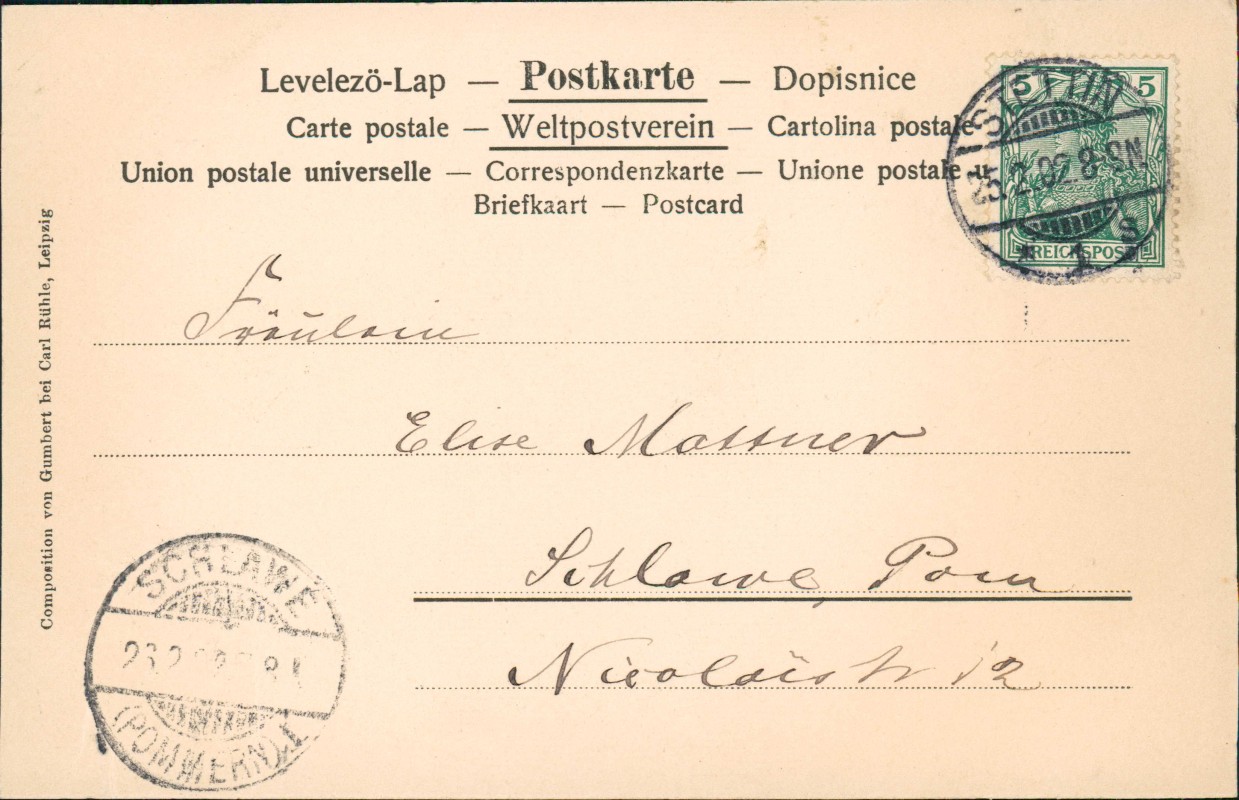 Levelezö-Lap — Postkarte — Dopisnice
Carte postale — Weltpostverein — Cartolina postale
Union postale universelle — Correspondenzkarte — Unione postale
Briefkaart — Postcard
5 5
REICHSPOST
STETTIN
25.2.02.8-9N.
1 s
Fräulein
Elise Mattner
Schlawe, Pom
Nicolaistr 12
SCHLAWE
(POMMERN) 1
Composition von Gumbert bei Carl Rühle, Leipzig